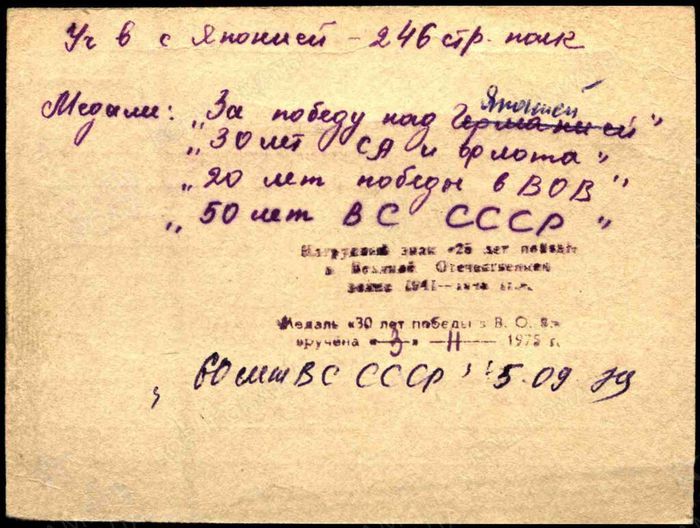 Уч в с Японией – 246 стр. полк
Японией
Медали: „За победу над Германией"
„30 лет СА и флота"
„20 лет победы в ВОВ"
„50 лет ВС СССР"
Нагрудный знак «25 лет победы
в Великой Отечественной
войне 1941—1945 гг.»
Медаль «30 лет победы в В. О. В.»
вручена «3» — II — 1975 г.
„60 лет ВС СССР" 5.09.79